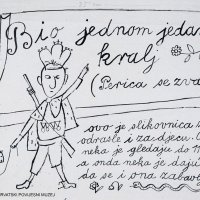 Bio jednom jedan
kralj
(Perica se zva
ovo je slikovnica
odrasle i za djecu.
neka je gledaju do
a onda neka je daju
da se i ona zabave
HRVATSKI POVIJESNI MUZEJ